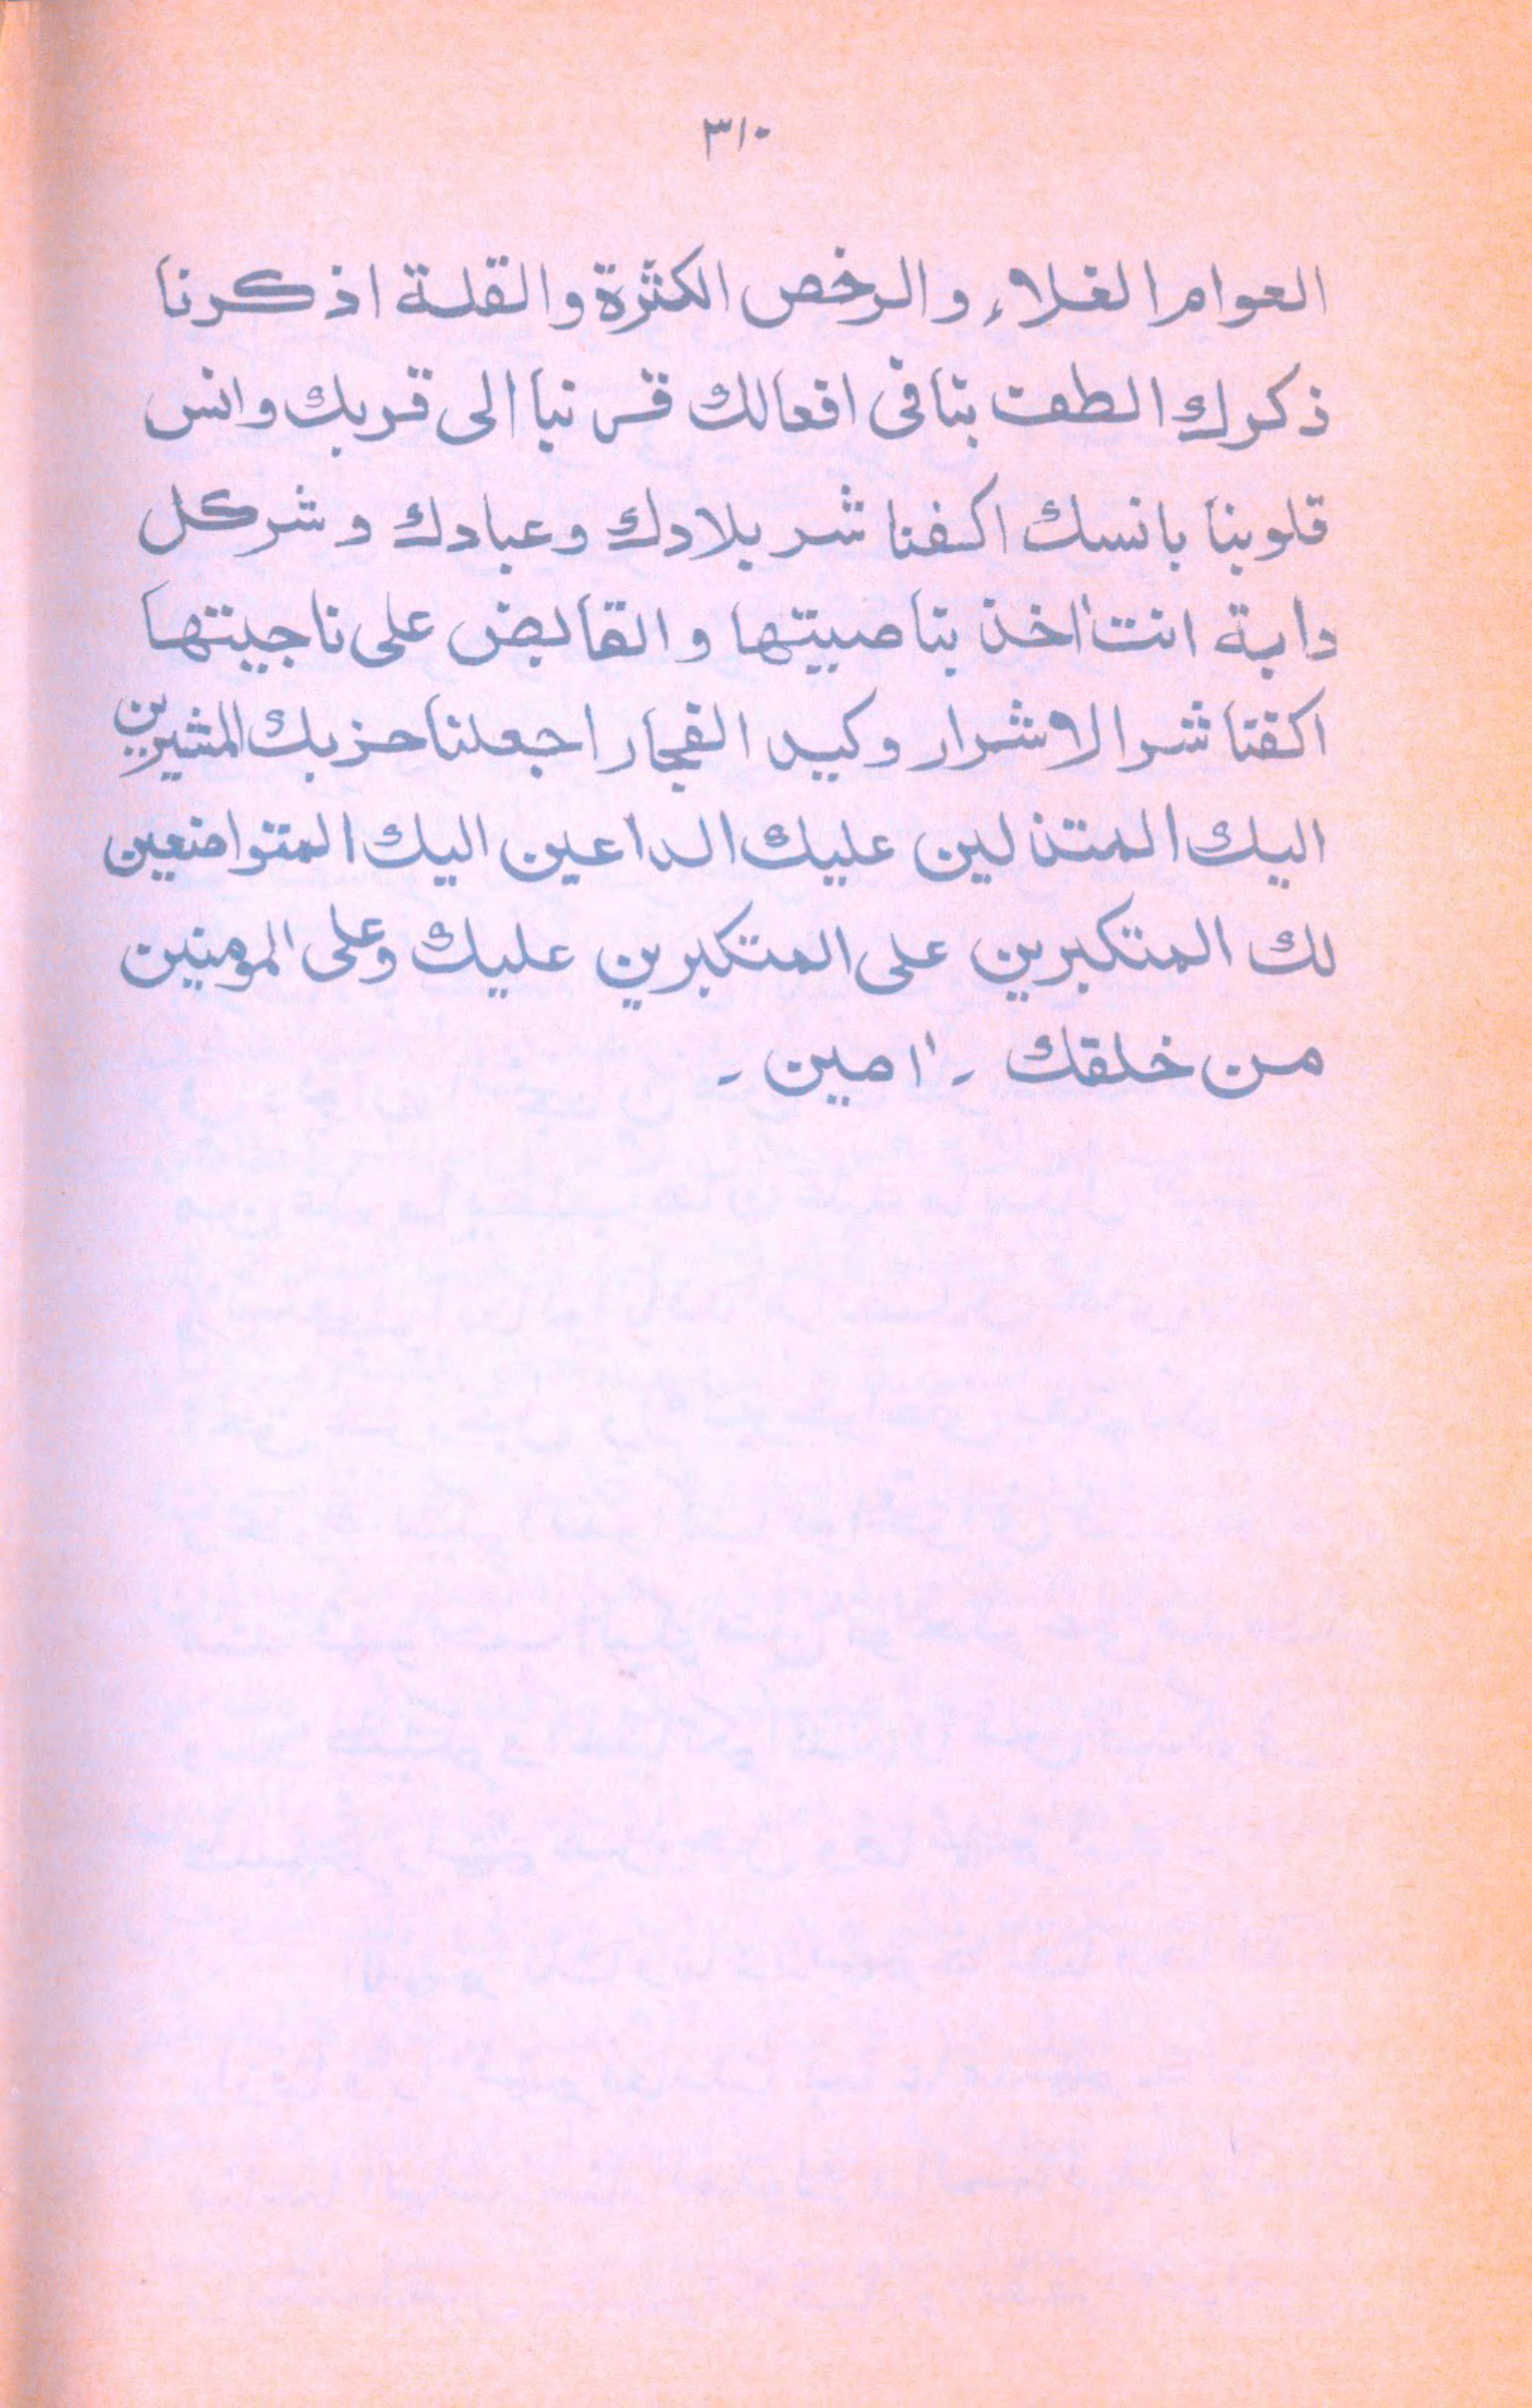 ٣١٠
العوام الغلاء والرخص الكثرة والقلة اذكرنا
ذكرك الطف بنا فى افعالك قربنا الى قربك وانس
قلوبنا بانسك اكفنا شر بلادك وعبادك وشر كل
دابة انت اٰخذ بناصيتها والقابض على ناجيتها
اكفنا شر الاشرار وكيد الفجار اجعلنا حزبك المشيرين
اليك المتذلين عليك الداعين اليك المتواضعين
لك المتكبرين على المتكبرين عليك وعلى المومنين
من خلقك ۔ اٰمين ۔